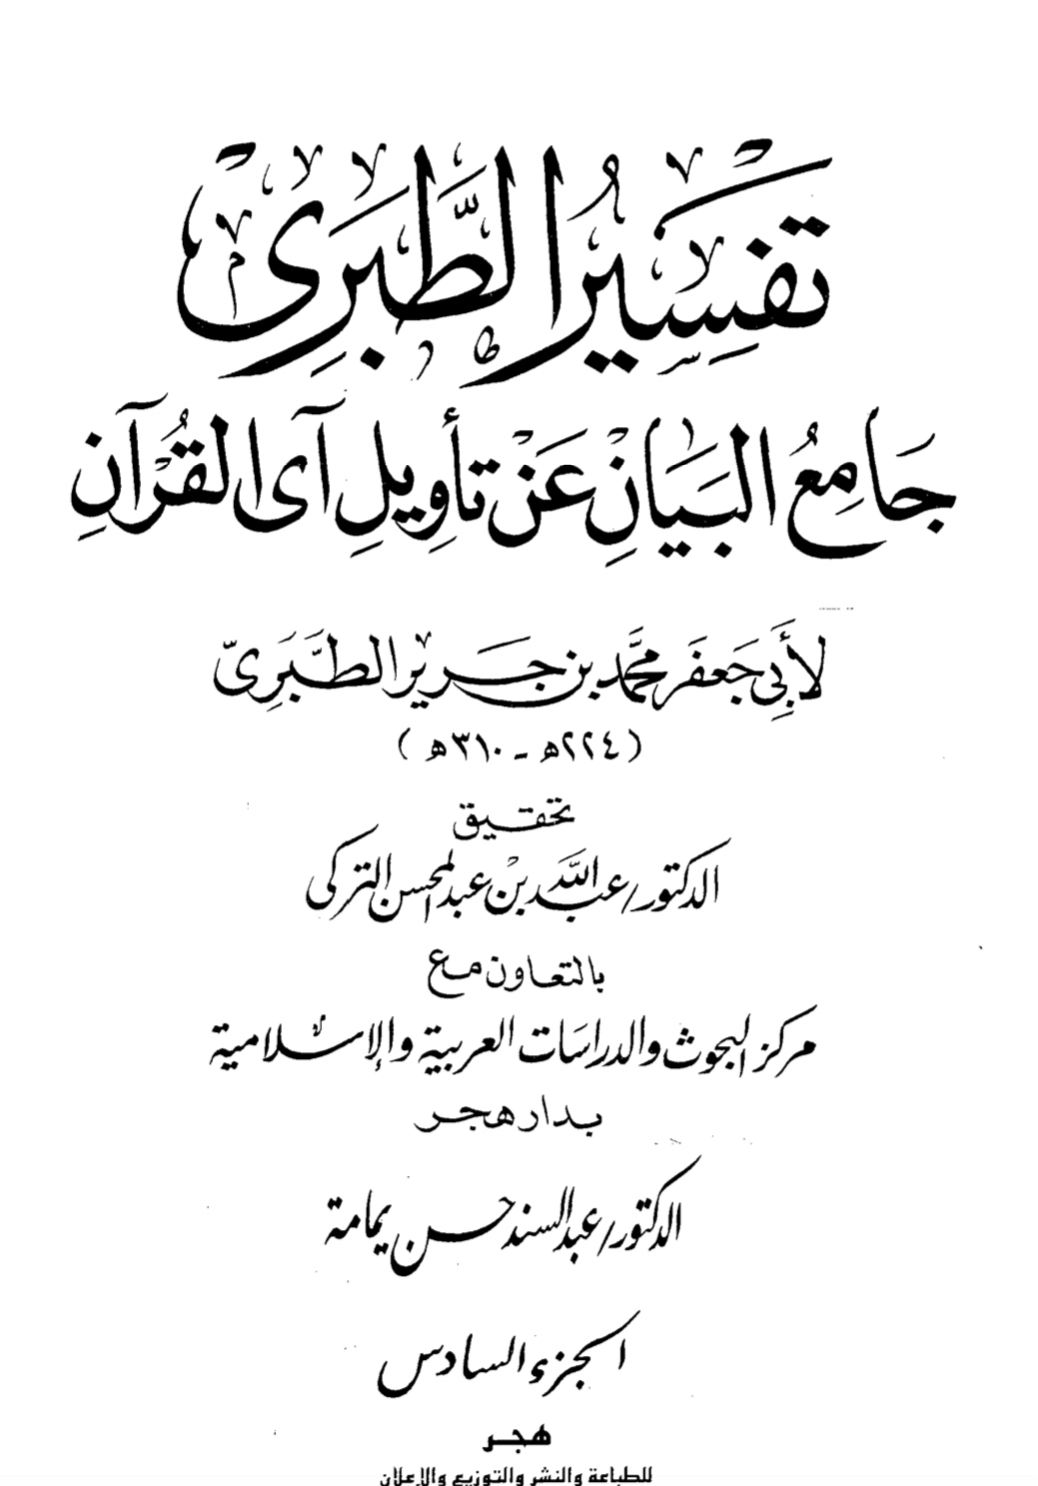 تَفْسِيرُ الطَّبَرِى
جَامِعُ البَيَانِ عَنْ تَأوِيلِ آىِ القُرْآنِ
لأَبِى جَعفَر مُحَمَّد بن جَرير الطَّبَرِىّ
(٢٢٤هـ - ٣١٠هـ)
تحقيق
الدكتور/ عبد اللَّه بن عبد المحسن التركى
بالتعاون مع
مركز البحوث والدراسات العربية والإسلامية
بدار هجر
الدكتور/ عبد السند حسن يمامة
الجزء السادس
هجر
للطباعة والنشر والتوزيع والإعلان